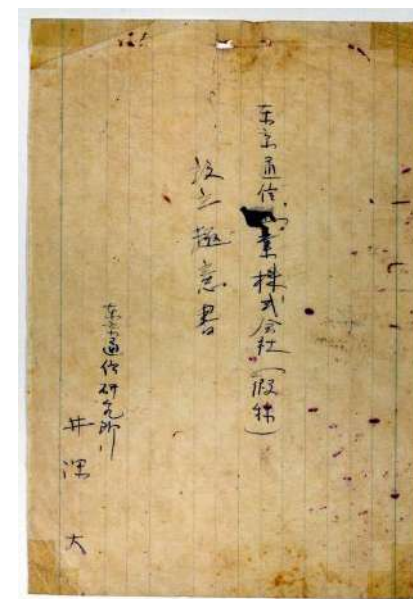 东京通信業株式会社(仮称)
設立趣意書
东京通信研究所
井深 大